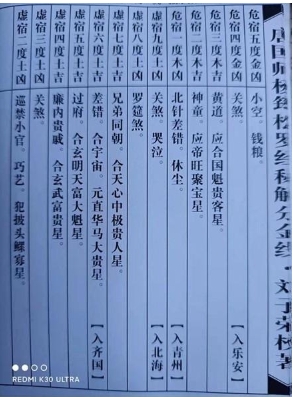 危宿五度金凶 小空。钱粮。
危宿四度金凶 关煞。 【入乐安】
危宿三度木吉 黄道。应合国魁贵客星。
危宿二度木吉 神童。应帝旺聚宝星。
危宿一度木凶 北针差错。休尘。 【入青州】
虚宿九度土凶 关煞。哭泣。 【入北海】
虚宿八度土凶 罗篚煞。
虚宿七度土吉 兄弟同朝。合天心中极贵人星。
虚宿六度土吉 差错。合宇宙。元直华马大贵星。 【入齐国】
虚宿五度土吉 过府。合玄明天富大魁星。
虚宿四度土吉 廉内贵戚。合玄武富贵星。
虚宿三度土凶 关煞。
虚宿二度土凶 巡禁小官。巧艺。犯披头鳏寡星。
REDMI K30 ULTRA